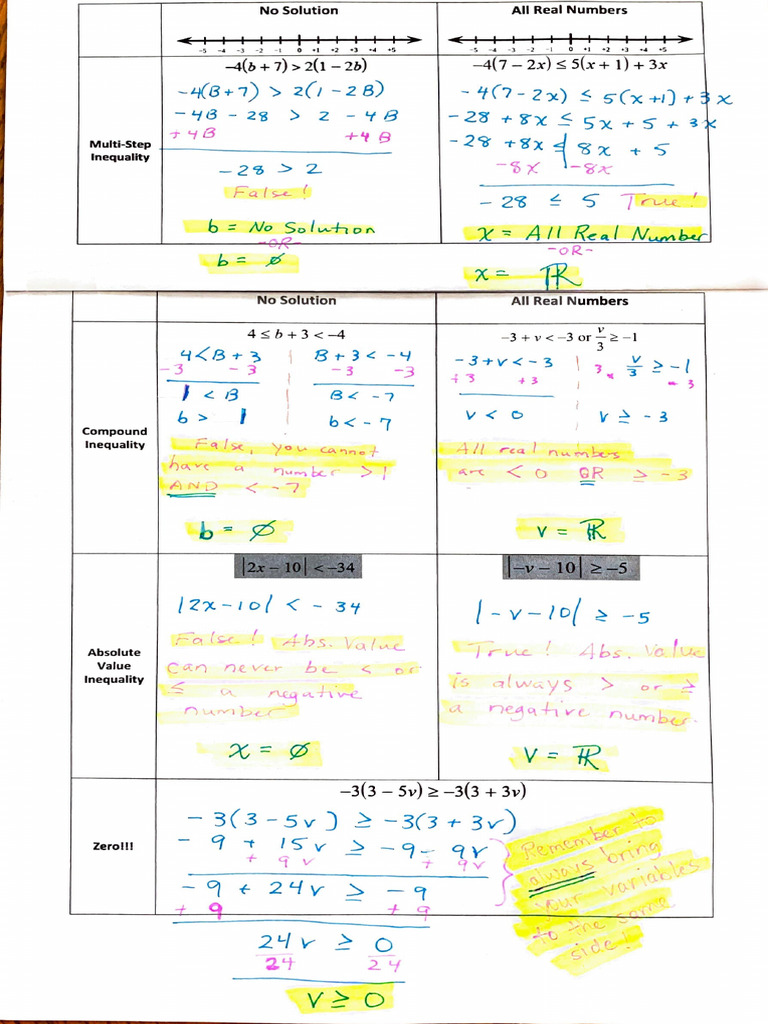 No Solution
All Real Numbers
-5 -4 -3 -2 -1 0 +1 +2 +3 +4 +5
-5 -4 -3 -2 -1 0 +1 +2 +3 +4 +5
Multi-Step
Inequality
−4(b + 7) > 2(1 − 2b)
-4(B+7) > 2(1-2B)
-4B - 28 > 2 - 4B
+4B +4B
-28 > 2
False!
b = No Solution
-OR-
b = ∅
−4(7 − 2x) ≤ 5(x + 1) + 3x
-4(7-2x) ≤ 5(x+1) + 3x
-28 + 8x ≤ 5x + 5 + 3x
-28 + 8x ≤ 8x + 5
-8x -8x
-28 ≤ 5 True!
x = All Real Number
-OR-
x = ℝ
No Solution
All Real Numbers
Compound
Inequality
4 ≤ b + 3 < −4
4 < B + 3 B + 3 < -4
-3 -3 -3 -3
1 < B B < -7
b > 1 b < -7
False, you cannot
have a number > 1
AND < -7
b = ∅
−3 + v < −3 or v/3 ≥ −1
-3 + v < -3 3 · v/3 ≥ -1 · 3
+3 +3
v < 0 v ≥ -3
All real numbers
are < 0 OR ≥ -3
v = ℝ
Absolute
Value
Inequality
|2x − 10| < −34
|2x-10| < -34
False! Abs. Value
can never be < or
≤ a negative
number
x = ∅
|−v − 10| ≥ −5
|-v-10| ≥ -5
True! Abs. Value
is always > or ≥
a negative number.
v = ℝ
Zero!!!
−3(3 − 5v) ≥ −3(3 + 3v)
-3(3-5v) ≥ -3(3+3v)
-9 + 15v ≥ -9 - 9v
+ 9v + 9v
-9 + 24v ≥ -9
+ 9 + 9
24v ≥ 0
24 24
v ≥ 0
Remember to
always bring
your variables
to the same
side!